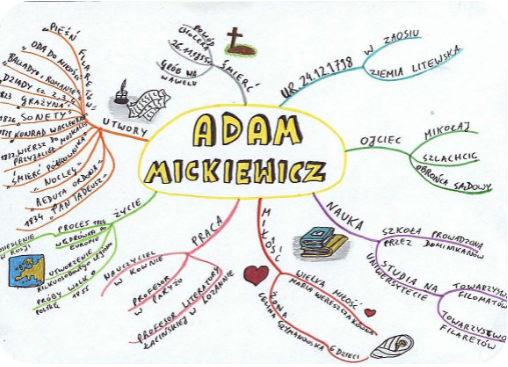 ADAM
MICKIEWICZ
UR. 24.12.1798
W ZAOSIU
ZIEMIA LITEWSKA
OJCIEC
MIKOŁAJ
SZLACHCIC
OBROŃCA SĄDOWY
NAUKA
SZKOŁA PROWADZONA
PRZEZ DOMINIKANÓW
STUDIA NA
UNIWERSYTECIE
TOWARZYSTWO
FILOMATÓW
TOWARZYSTWO
FILARETÓW
MIŁOŚĆ
WIELKA MIŁOŚĆ
MARIA WERESZCZAKÓWNA
ŻONA
SZYMANOWSKA 6 DZIECI
PRACA
NAUCZYCIEL
W KOWNIE
PROFESOR
W PARYŻU
PROFESOR LITERATURY
ŁACIŃSKIEJ W LOZANNIE
ŻYCIE
PROCES
WĘDRÓWKA
EUROPIE
W ROSJI
UTWORZENIE
PRÓBY WALK O
POLSKĘ 1855
UTWORY
PIEŚŃ FILARETÓW
ODA DO MŁODOŚCI
BALLADY I ROMANSE
DZIADY CZ. 2, 3, 4
1823 GRAŻYNA
1826 "SONETY"
1828 KONRAD WALLENROD
WIERSZ DO MOSKALI
PRZYJACIÓŁ
"ŚMIERĆ PUŁKOWNIKA"
"NOCLEG"
REDUTA ORDONA
1834 "PAN TADEUSZ"
ŚMIERĆ
POWÓD
CHOLERA
26.11.1855
GRÓB NA
WAWELU